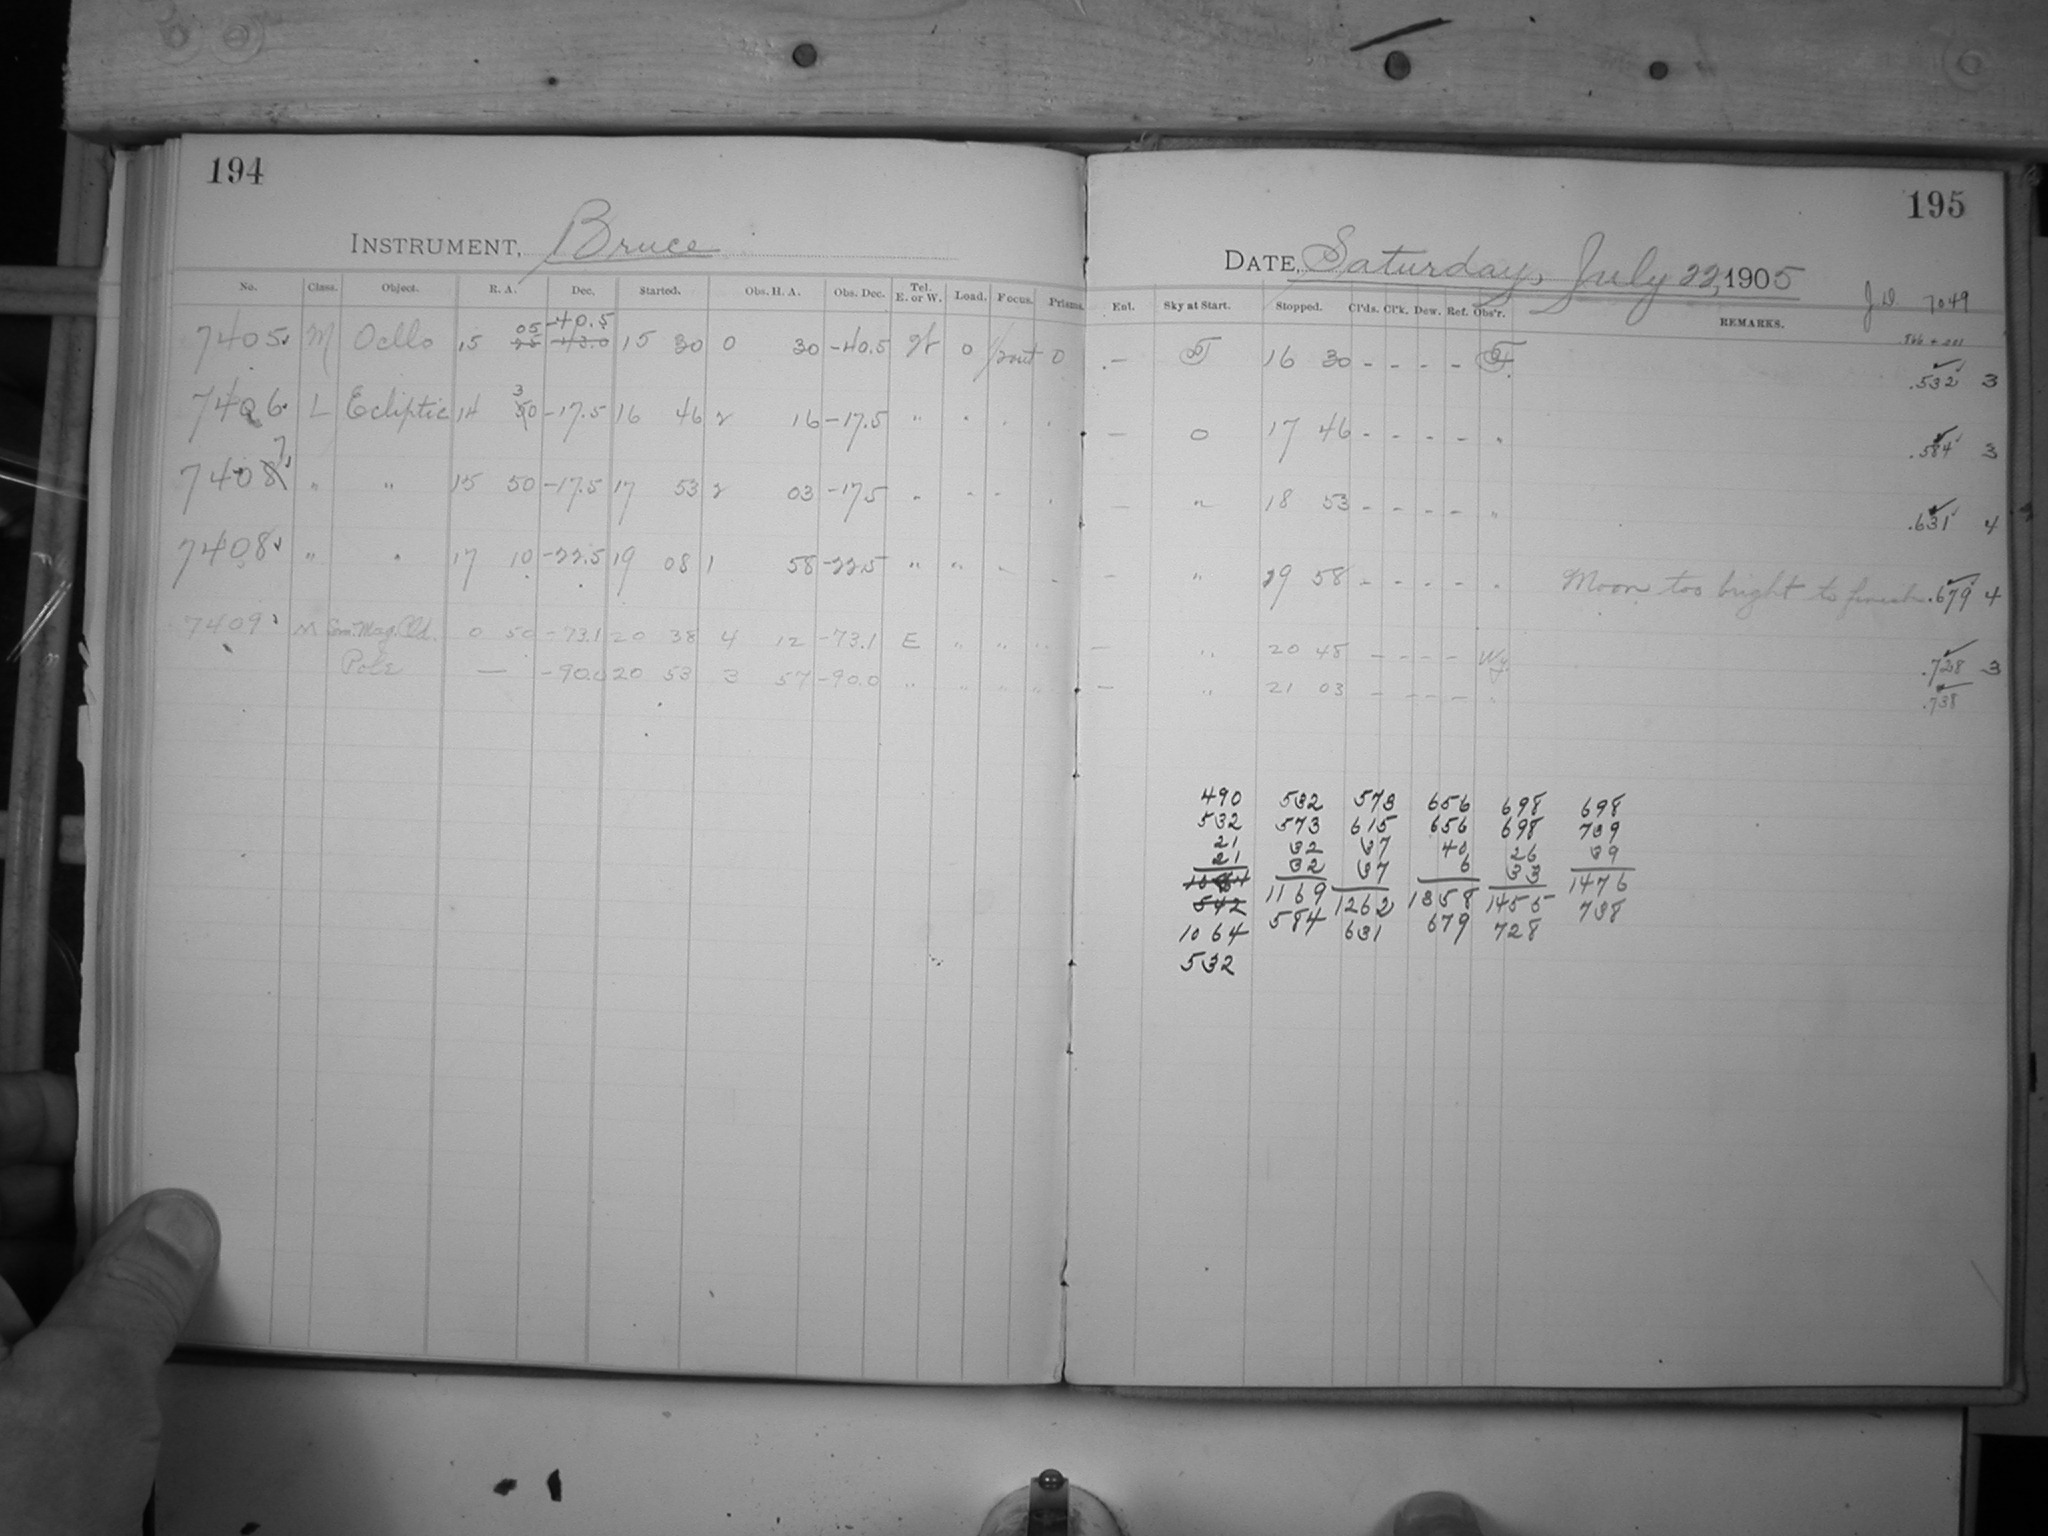 194
INSTRUMENT, Bruce
No. Class. Object. R. A. Dec. Started. Obs. H. A. Obs. Dec. Tel. E. or W. Load. Focus. Prisms.
05 -40.5
7405 M Oello 15 25 -43.0 15 30 0 30 -40.5 W 0 0
3
7406 L Ecliptic 14 50 -17.5 16 46 2 16 -17.5 " " " "
7
7408 " " 15 50 -17.5 17 53 2 03 -17.5 " - - "
7408 " " 17 10 -22.5 19 08 1 58 -22.5 " " - -
7409 M Sm. Mag. Cld. 0 50 -73.1 20 38 4 12 -73.1 E " " "
Pole — -90.0 20 53 3 57 -90.0 " " " "
195
DATE, Saturday, July 22, 1905
J D 7049
Ent. Sky at Start. Stopped. Cl'ds. Cl'k. Dew. Ref. Obs'r. REMARKS.
— 16 30 - - - - .532 3
— 0 17 46 - - - - " .584 3
— " 18 53 - - - - " .631 4
— " 19 58 - - - - " Moon too bright to finish .679 4
— " 20 48 - - - - Wy. .728 3
— " 21 03 - - - - " .738
490 532 573 656 698 698
532 573 615 656 698 739
21 32 37 40 26 39
21 32 37 6 33
1084 1169 1262 1358 1455 1476
542 584 631 679 728 738
1064
532